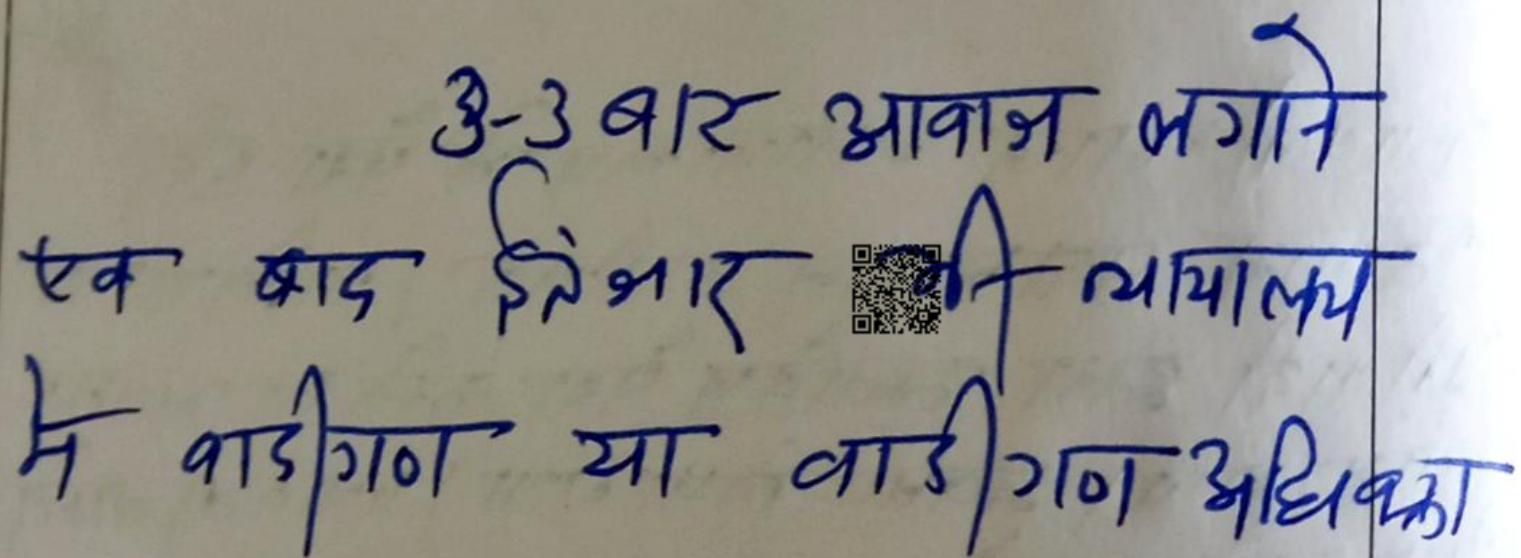 3-3 बार आवाज लगाने
एव बाद ईतंजार भी न्यायालय
में वादीगण या वादीगण अधिवक्ता